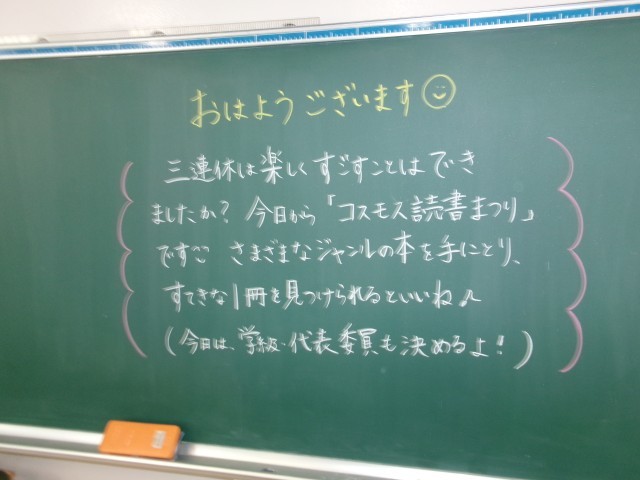 おはようございます
三連休は楽しくすごすことはでき
ましたか？今日から「コスモス読書まつり」
です。さまざまなジャンルの本を手にとり、
すてきな1冊を見つけられるといいね♪
（今日は、学級・代表委員も決めるよ！）